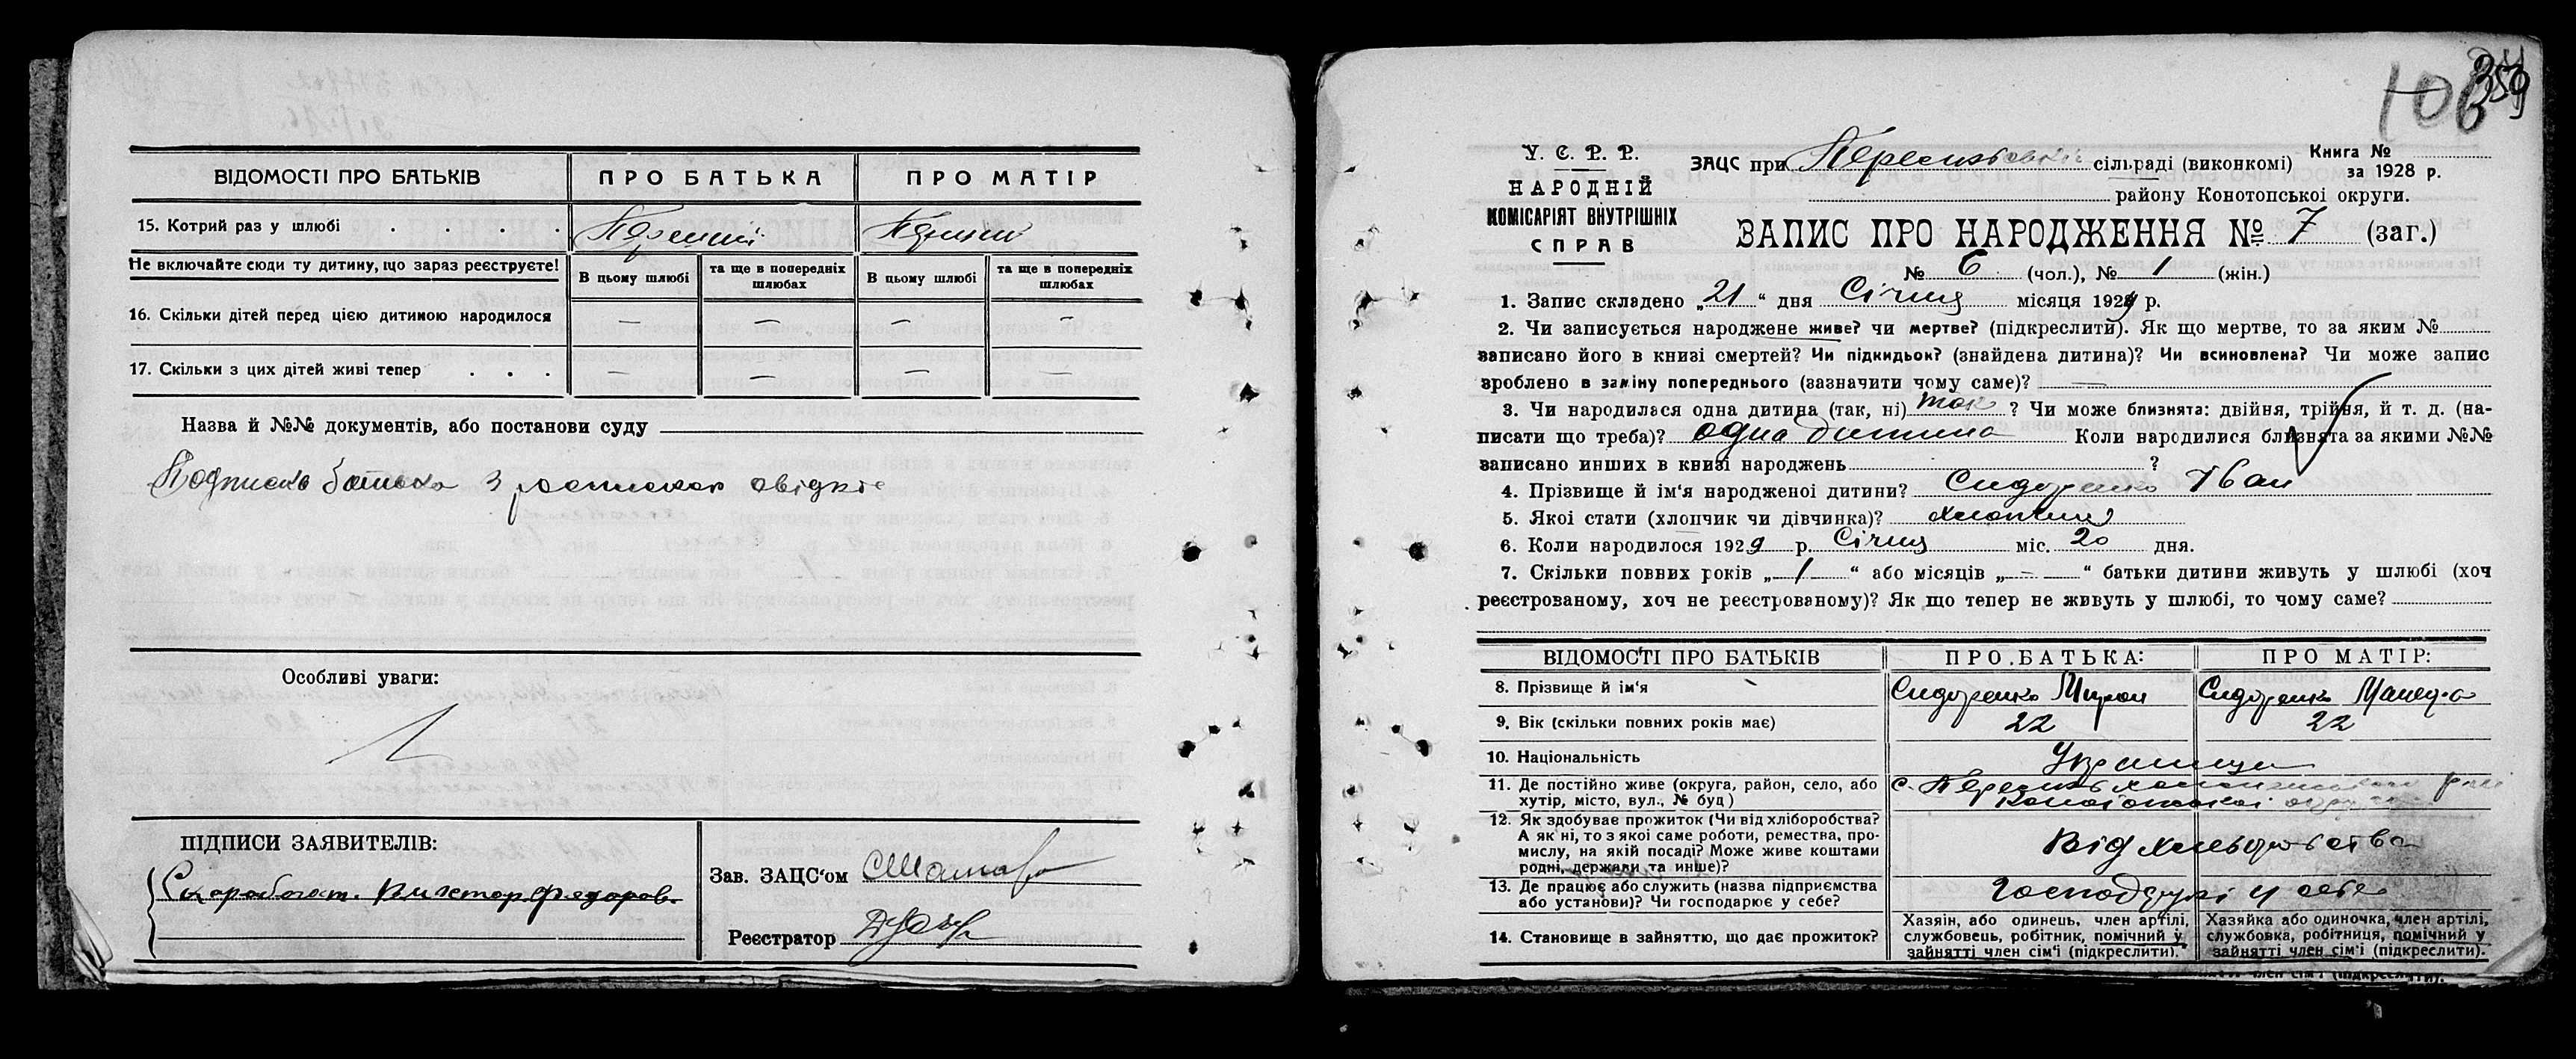 ВІДОМОСТІ ПРО БАТЬКІВ ПРО БАТЬКА ПРО МАТІР
15. Котрий раз у шлюбі . . . . Перший Перший
Не включайте сюди ту дитину, що зараз реєструєте! В цьому шлюбі та ще в попередніх шлюбах В цьому шлюбі та ще в попередніх шлюбах
16. Скільки дітей перед цією дитиною народилося — — — —
17. Скільки з цих дітей живі тепер . . . — — — —
Назва й №№ документів, або постанови суду
Особливі уваги:
ПІДПИСИ ЗАЯВИТЕЛІВ:
Зав. ЗАЦС'ом
Реєстратор
359
У. С. Р. Р.
НАРОДНІЙ
КОМІСАРІЯТ ВНУТРІШНІХ
СПРАВ
ЗАЦС при сільраді (виконкомі) Книга №
за 1928 р.
району Конотопської округи.
ЗАПИС ПРО НАРОДЖЕННЯ № 7 (заг.)
№ 6 (чол.), № 1 (жін.)
1. Запис складено „21“ дня Січня місяця 1929 р.
2. Чи записується народжене живе? чи мертве? (підкреслити). Як що мертве, то за яким №
записано його в книзі смертей? Чи підкидьок? (знайдена дитина)? Чи всиновлена? Чи може запис
зроблено в заміну попереднього (зазначити чому саме)? —
3. Чи народилася одна дитина (так, ні) так ? Чи може близнята: двійня, трійня, й т. д. (на-
писати що треба)? одна дитина Коли народилися близнята за якими №№
записано инших в книзі народжень ?
4. Прізвище й ім'я народженої дитини? Сидоренко Іван
5. Якої стати (хлопчик чи дівчинка)? хлопчик
6. Коли народилося 1929 р. Січня міс. 20 дня.
7. Скільки повних років „1“ або місяців „—“ батьки дитини живуть у шлюбі (хоч
реєстрованому, хоч не реєстрованому)? Як що тепер не живуть у шлюбі, то чому саме?
ВІДОМОСТІ ПРО БАТЬКІВ ПРО БАТЬКА: ПРО МАТІР:
8. Прізвище й ім'я Сидоренко Мирон Сидоренко
9. Вік (скільки повних років має) 22 22
10. Національність Українці
11. Де постійно живе (округа, район, село, або
хутір, місто, вул., № буд)
12. Як здобуває прожиток (Чи від хліборобства?
А як ні, то з якої саме роботи, ремества, про-
мислу, на якій посаді? Може живе коштами
родні, держави та инше)? Від хліборобства
13. Де працює або служить (назва підприємства
або установи)? Чи господарює у себе? у себе
14. Становище в зайняттю, що дає прожиток?
Хазяїн, або одинець, член артілі, службовець, робітник, помічний у зайнятті член сім'ї (підкреслити).
Хазяйка або одиночка, член артілі, службовка, робітниця, помічний у зайнятті член сім'ї (підкреслити).